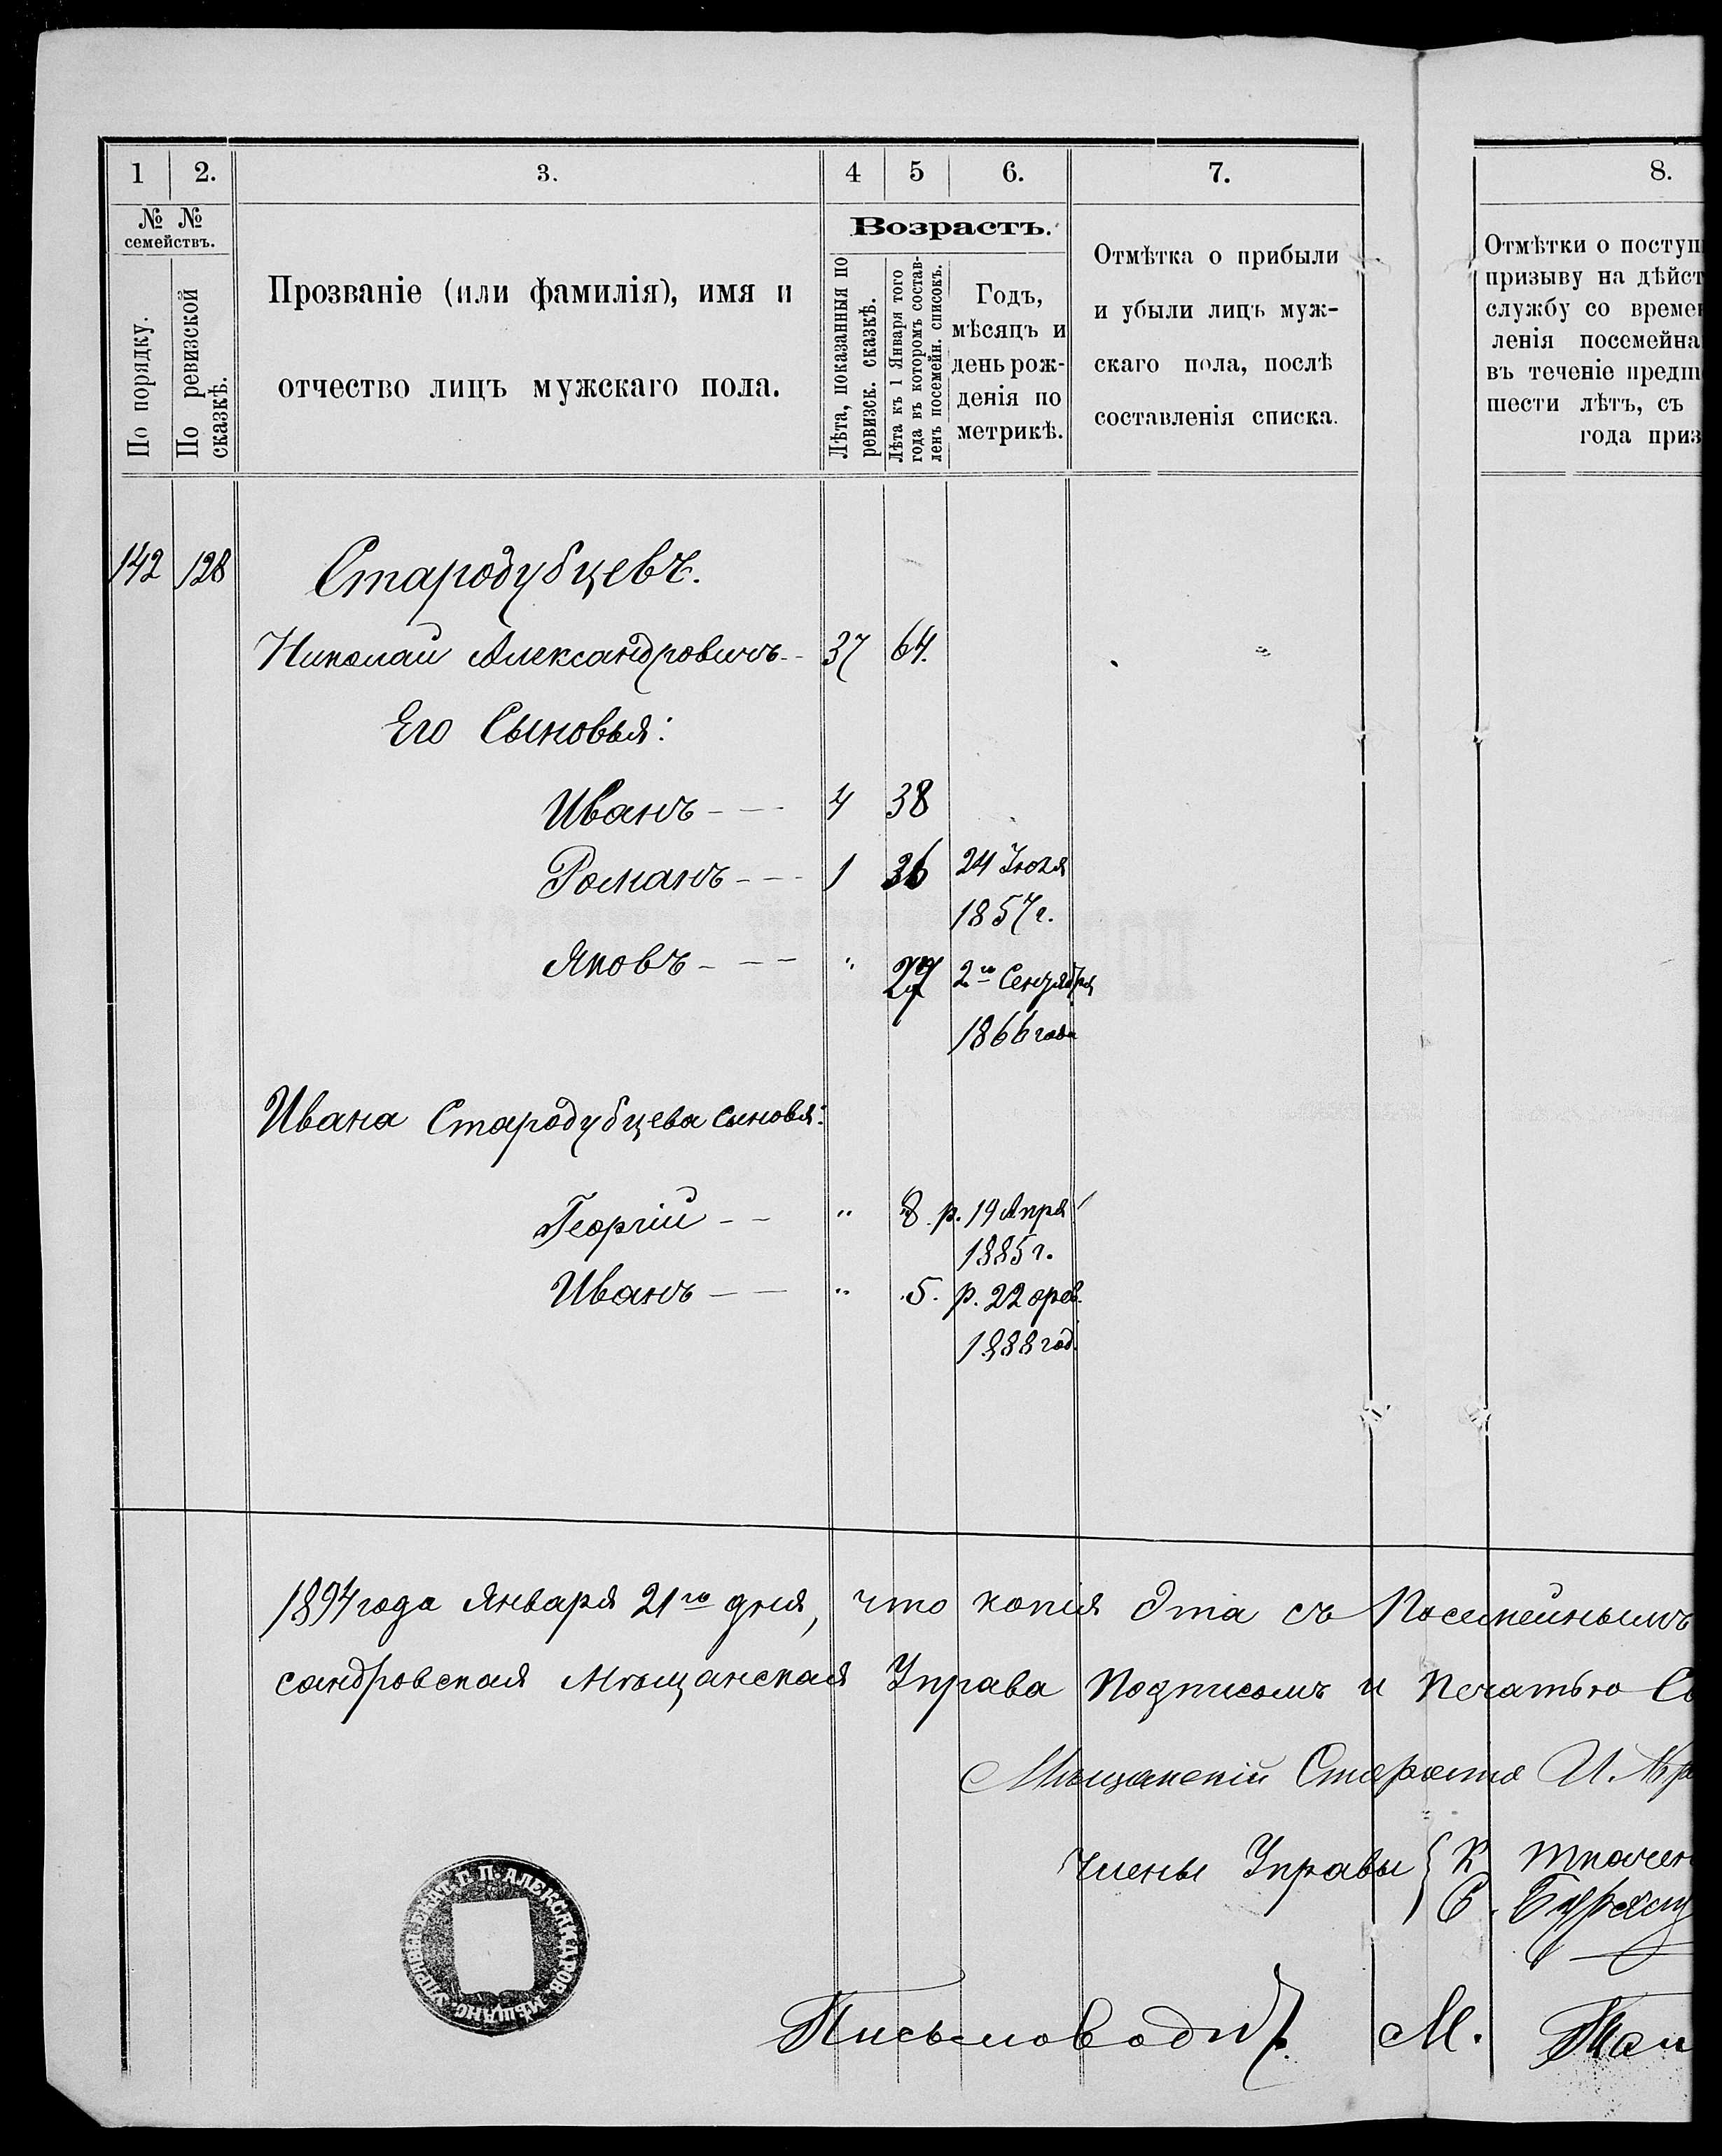 1 2. 3. 4 5 6. 7. 8.
№ №
семействъ.
По порядку.
По ревизской
сказкѣ.
Прозваніе (или фамилія), имя и
отчество лицъ мужскаго пола.
Возрастъ.
Лѣта, показанныя по
ревизск. сказкѣ.
Лѣта къ 1 Января того
года въ которомъ состав-
ленъ посемейн. списокъ.
Годъ,
мѣсяцъ и
день рож-
денія по
метрикѣ.
Отмѣтка о прибыли
и убыли лицъ муж-
скаго пола, послѣ
составленія списка.
Отмѣтки о поступ
призыву на дѣйст
службу со времен
ленія посемейна
въ теченіе предш
шести лѣтъ, съ
года приз
142 128 Стародубцевъ.
Николай Александровичъ 37 64.
Его Сыновья:
Иванъ 4 38
Романъ 1 36 24 Іюля
1857 г.
Яковъ " 27 2го Сентября
1866 года
Ивана Стародубцева сыновья:
Георгій " 8 р. 19 Апрѣ
1885 г.
Иванъ " 5. р. 22 фев.
1888 год.
1894 года Января 21го дня, что копія эта съ Посемейнымъ
сандровская Мѣщанская Управа подписомъ и печатью Св
Мѣщанскій Староста И.
Члены Управы К Ткачен
С.
Письмоводит. М.
УПРАВА ЕКАТ. Г. П. АЛЕКСАНДРОВ. МѢЩАНС.